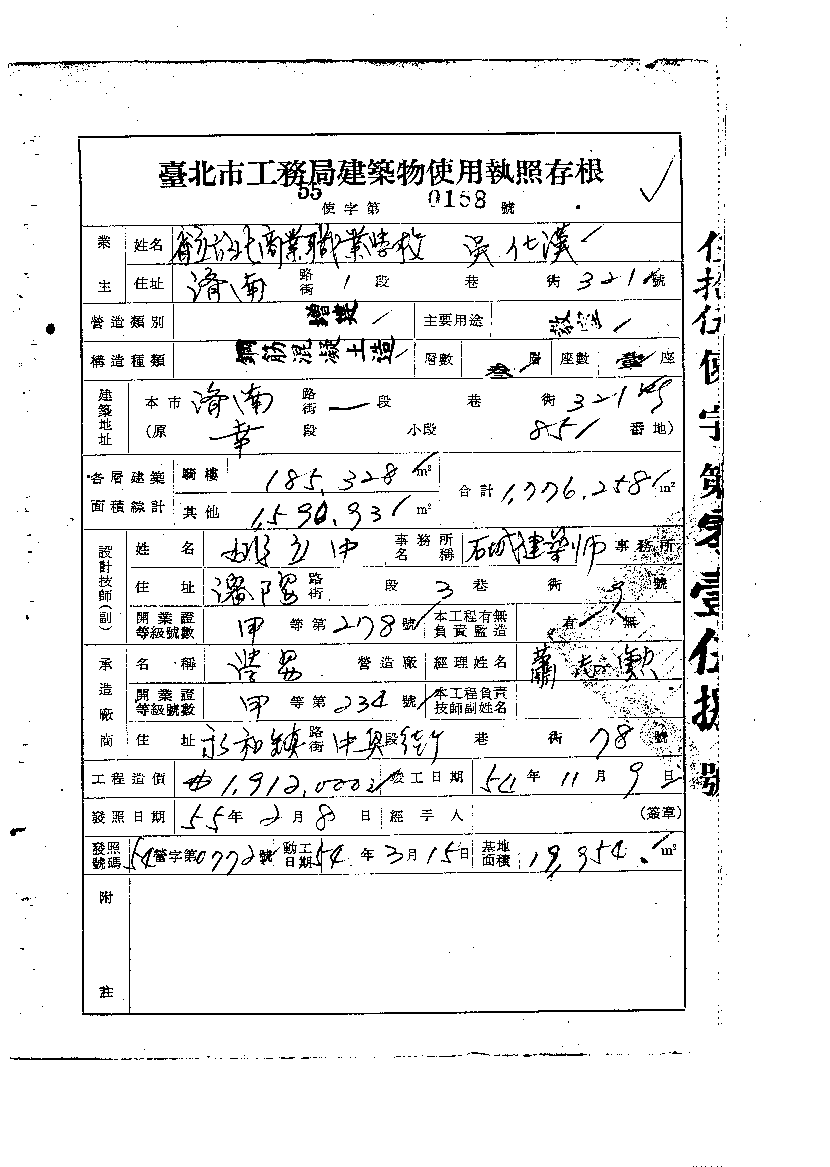 臺北市工務局建築物使用執照存根
55 使字第 0158 號
業主 姓名 省立台北商業職業學校 吳仕漢
住址 濟南 路街 1 段 巷 街 321 號
營造類別 增建 主要用途 教室
構造種類 鋼筋混凝土造 層數 叁 層 座數 壹 座
建築地址 本市 濟南 路街 一 段 巷 街 321 號
(原 幸 段 小段 851 番地)
各層建築面積總計 騎樓 185.328 m² 合計 1,776.258 m²
其他 1,590.93 m²
設計技師(副) 姓名 立中 事務所名稱 石城建築師 事務所
住址 瀋陽 路街 段 3 巷 街 9 號
開業證等級號數 甲 等第 278 號 本工程有無負責監造 有 無
承造廠商 名稱 營造廠 經理姓名 蕭 勲
開業證等級號數 甲 等第 234 號 本工程負責技師副姓名
住址 永和鎮 路街 中興段街 巷 街 78 號
工程造價 1,912,000 竣工日期 54 年 11 月 9 日
發照日期 55 年 2 月 8 日 經手人 (簽章)
發照號碼 54 營字第 0772 號 動工日期 54 年 3 月 15 日 基地面積 19,954. m²
附註
伍拾伍使字第零壹伍捌號